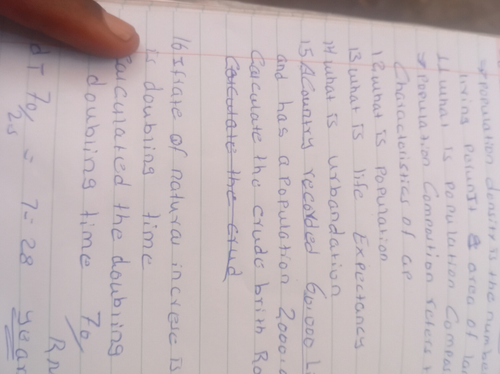 → Population density is the number
living Paluntit & area of la
11 what is population Compos
→ Population Composition refers t
Characteristics of ap
12 what is population
13 what is life Expectancy
14 what is urbandation
15 A Country recorded 60.000 L
and has a population 2000.0
Calculate the crude brith Ra
Calculate the crud
16 If rate of natural increse is
is doubling time
Calculated the doubling
doubling time 70/
Rn
dT 70/25 = 7= 28 years